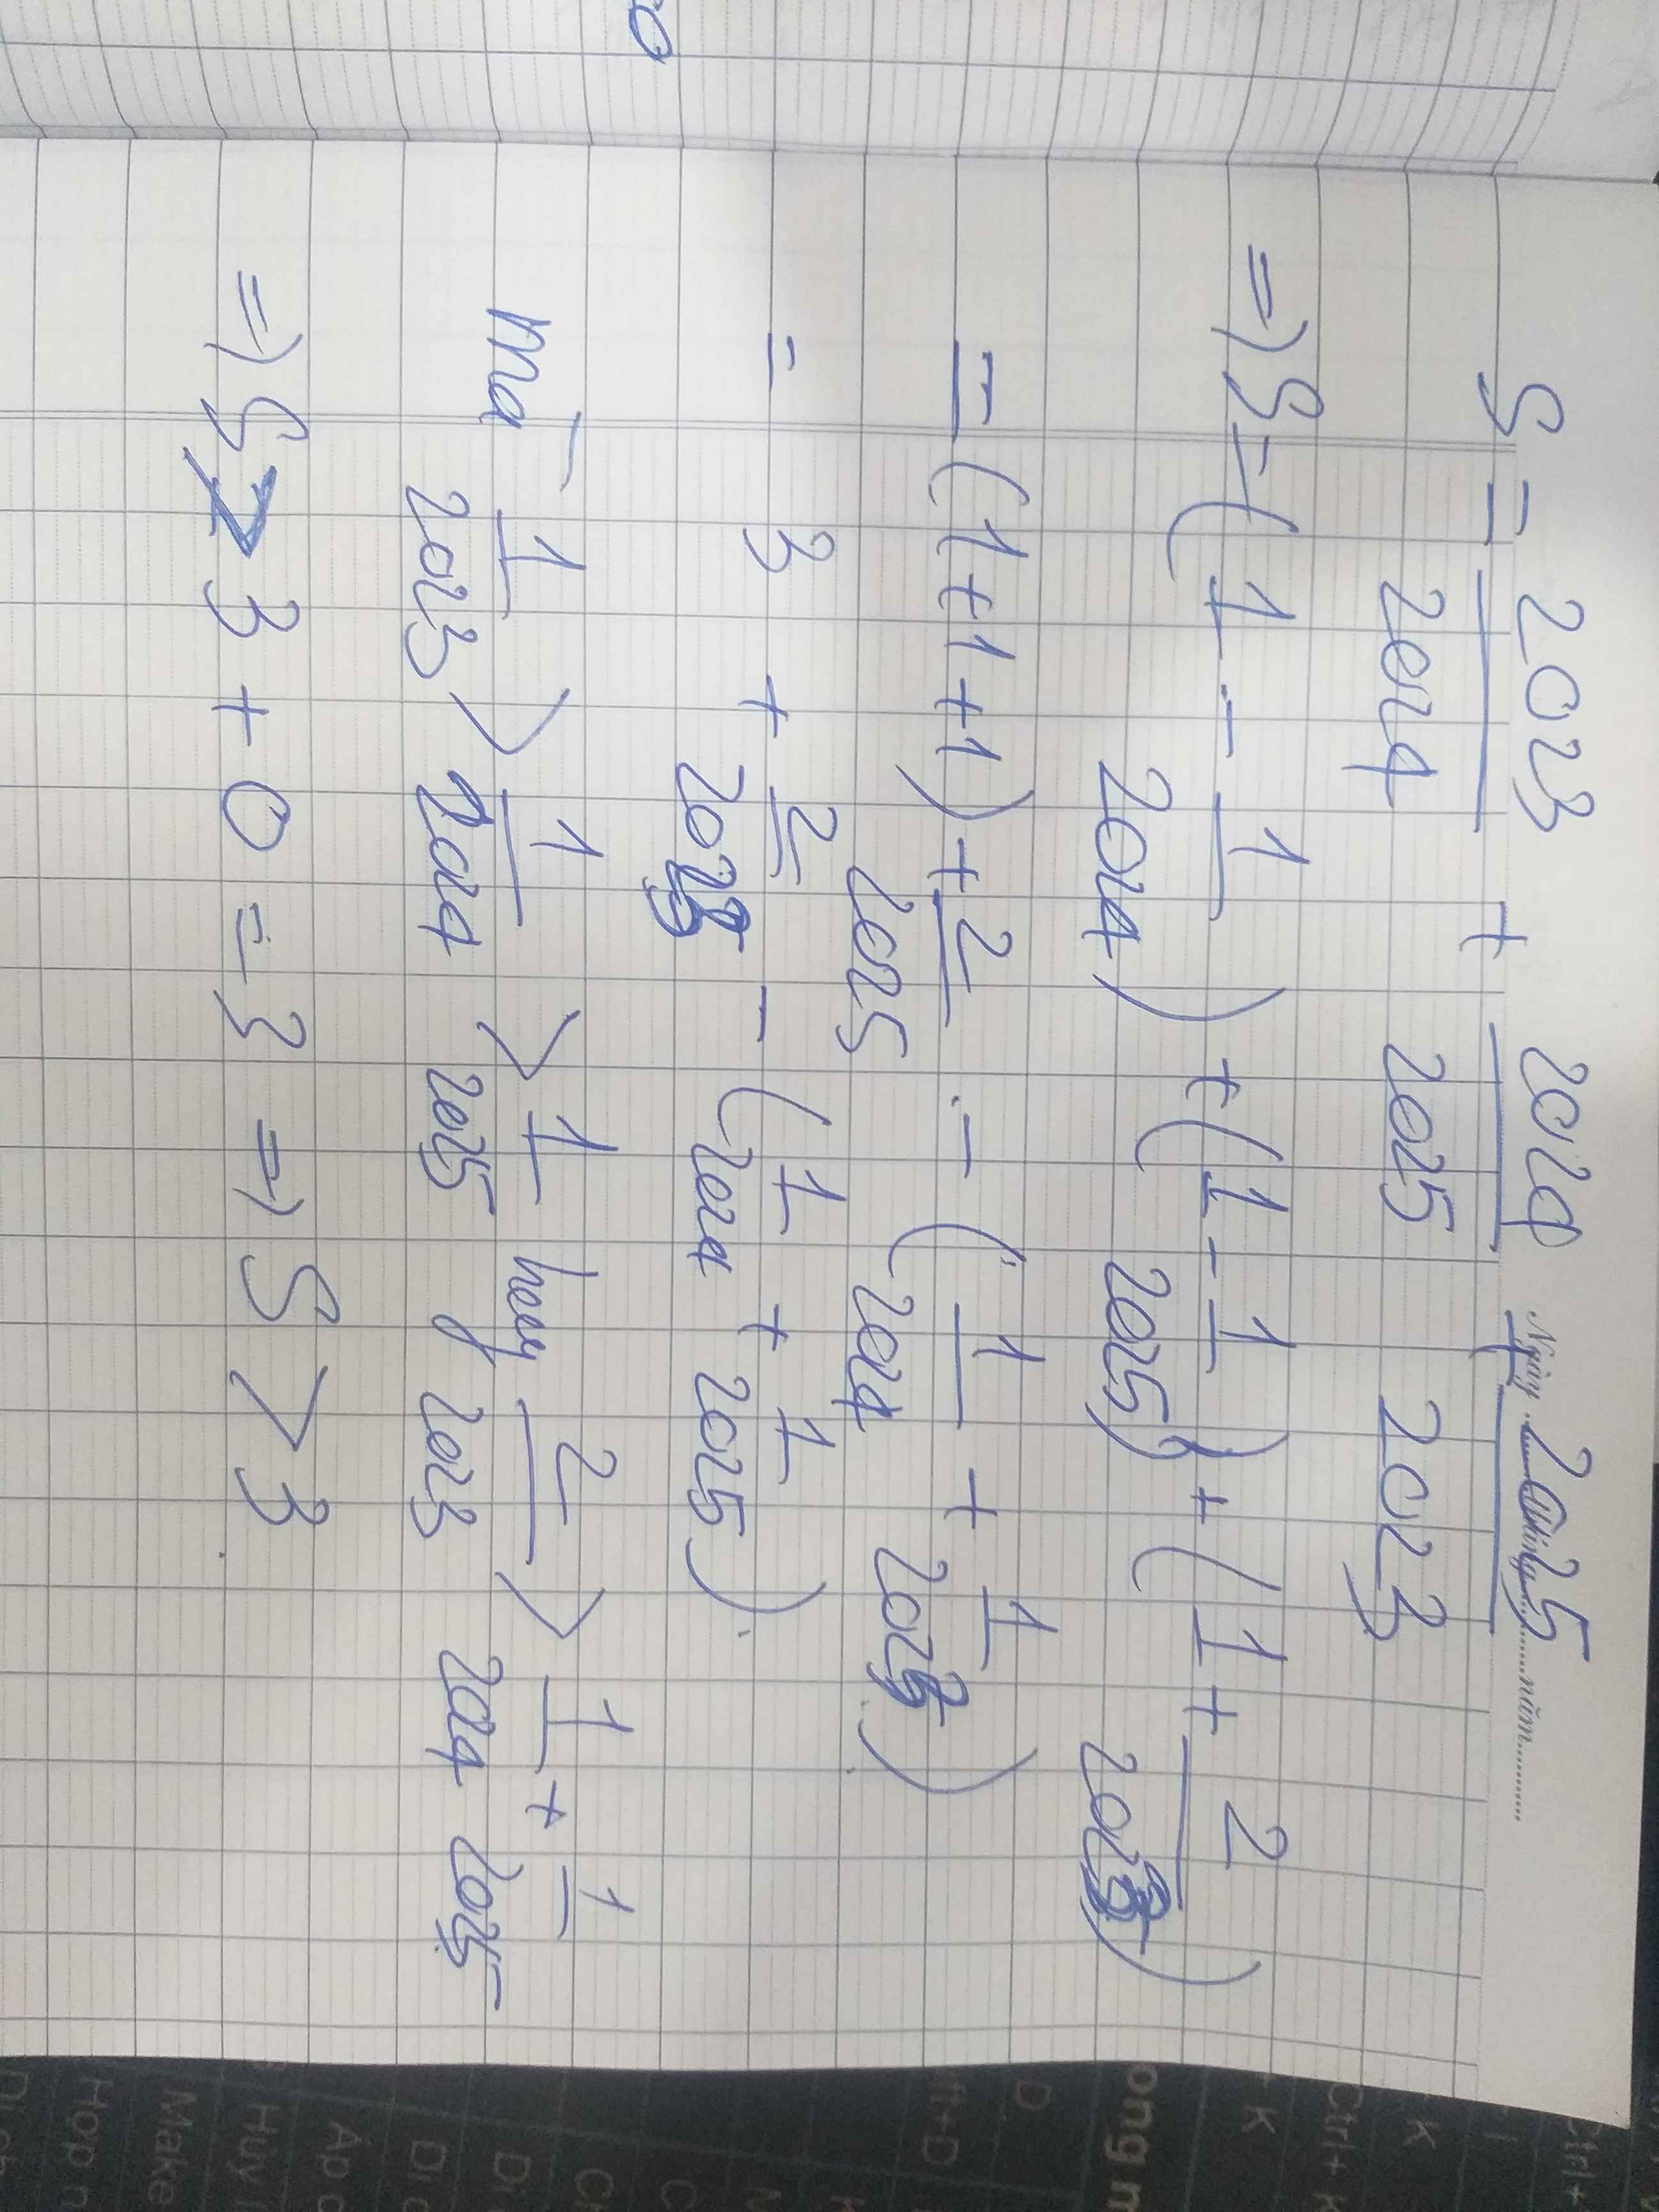 Ngày ............ năm............
S = 2023/2024 + 2024/2025 + 2025/2023
=) S = (1 - 1/2024) + (1 - 1/2025) + (1 + 2/2023)
= (1+1+1) + 2/2025 - (1/2024 + 1/2023)
= 3 + 2/2023 - (1/2024 + 1/2025)
mà 1/2023 > 1/2024 > 1/2025 hay 2/2023 > 1/2024 + 1/2025
=) S > 3 + 0 = 3 =) S > 3
Ctrl+
Ctrl+ K
K
ong m
ft+D
D
Di c
Áp d
Hủy l
Make
Hợp n